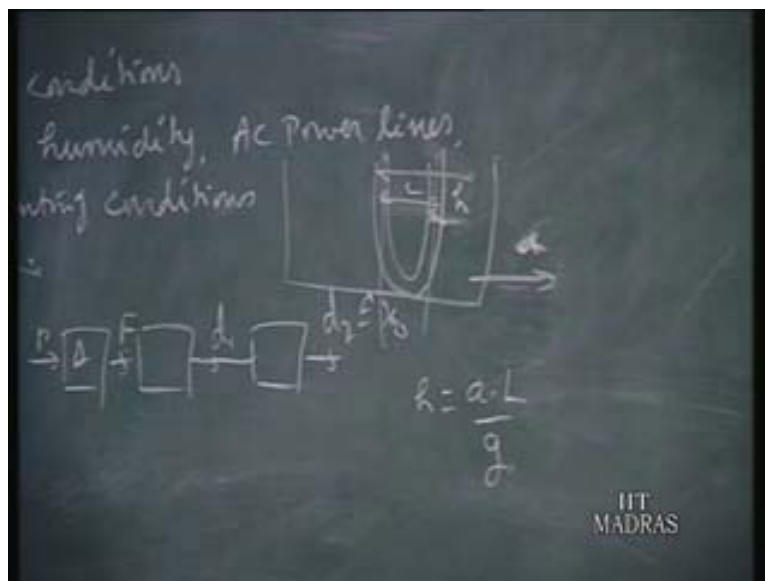 conditions
humidity, AC Power lines,
nting conditions
L
h
a
P
A
F
d1
d2 = x0
h = a·L
g
IIT
MADRAS